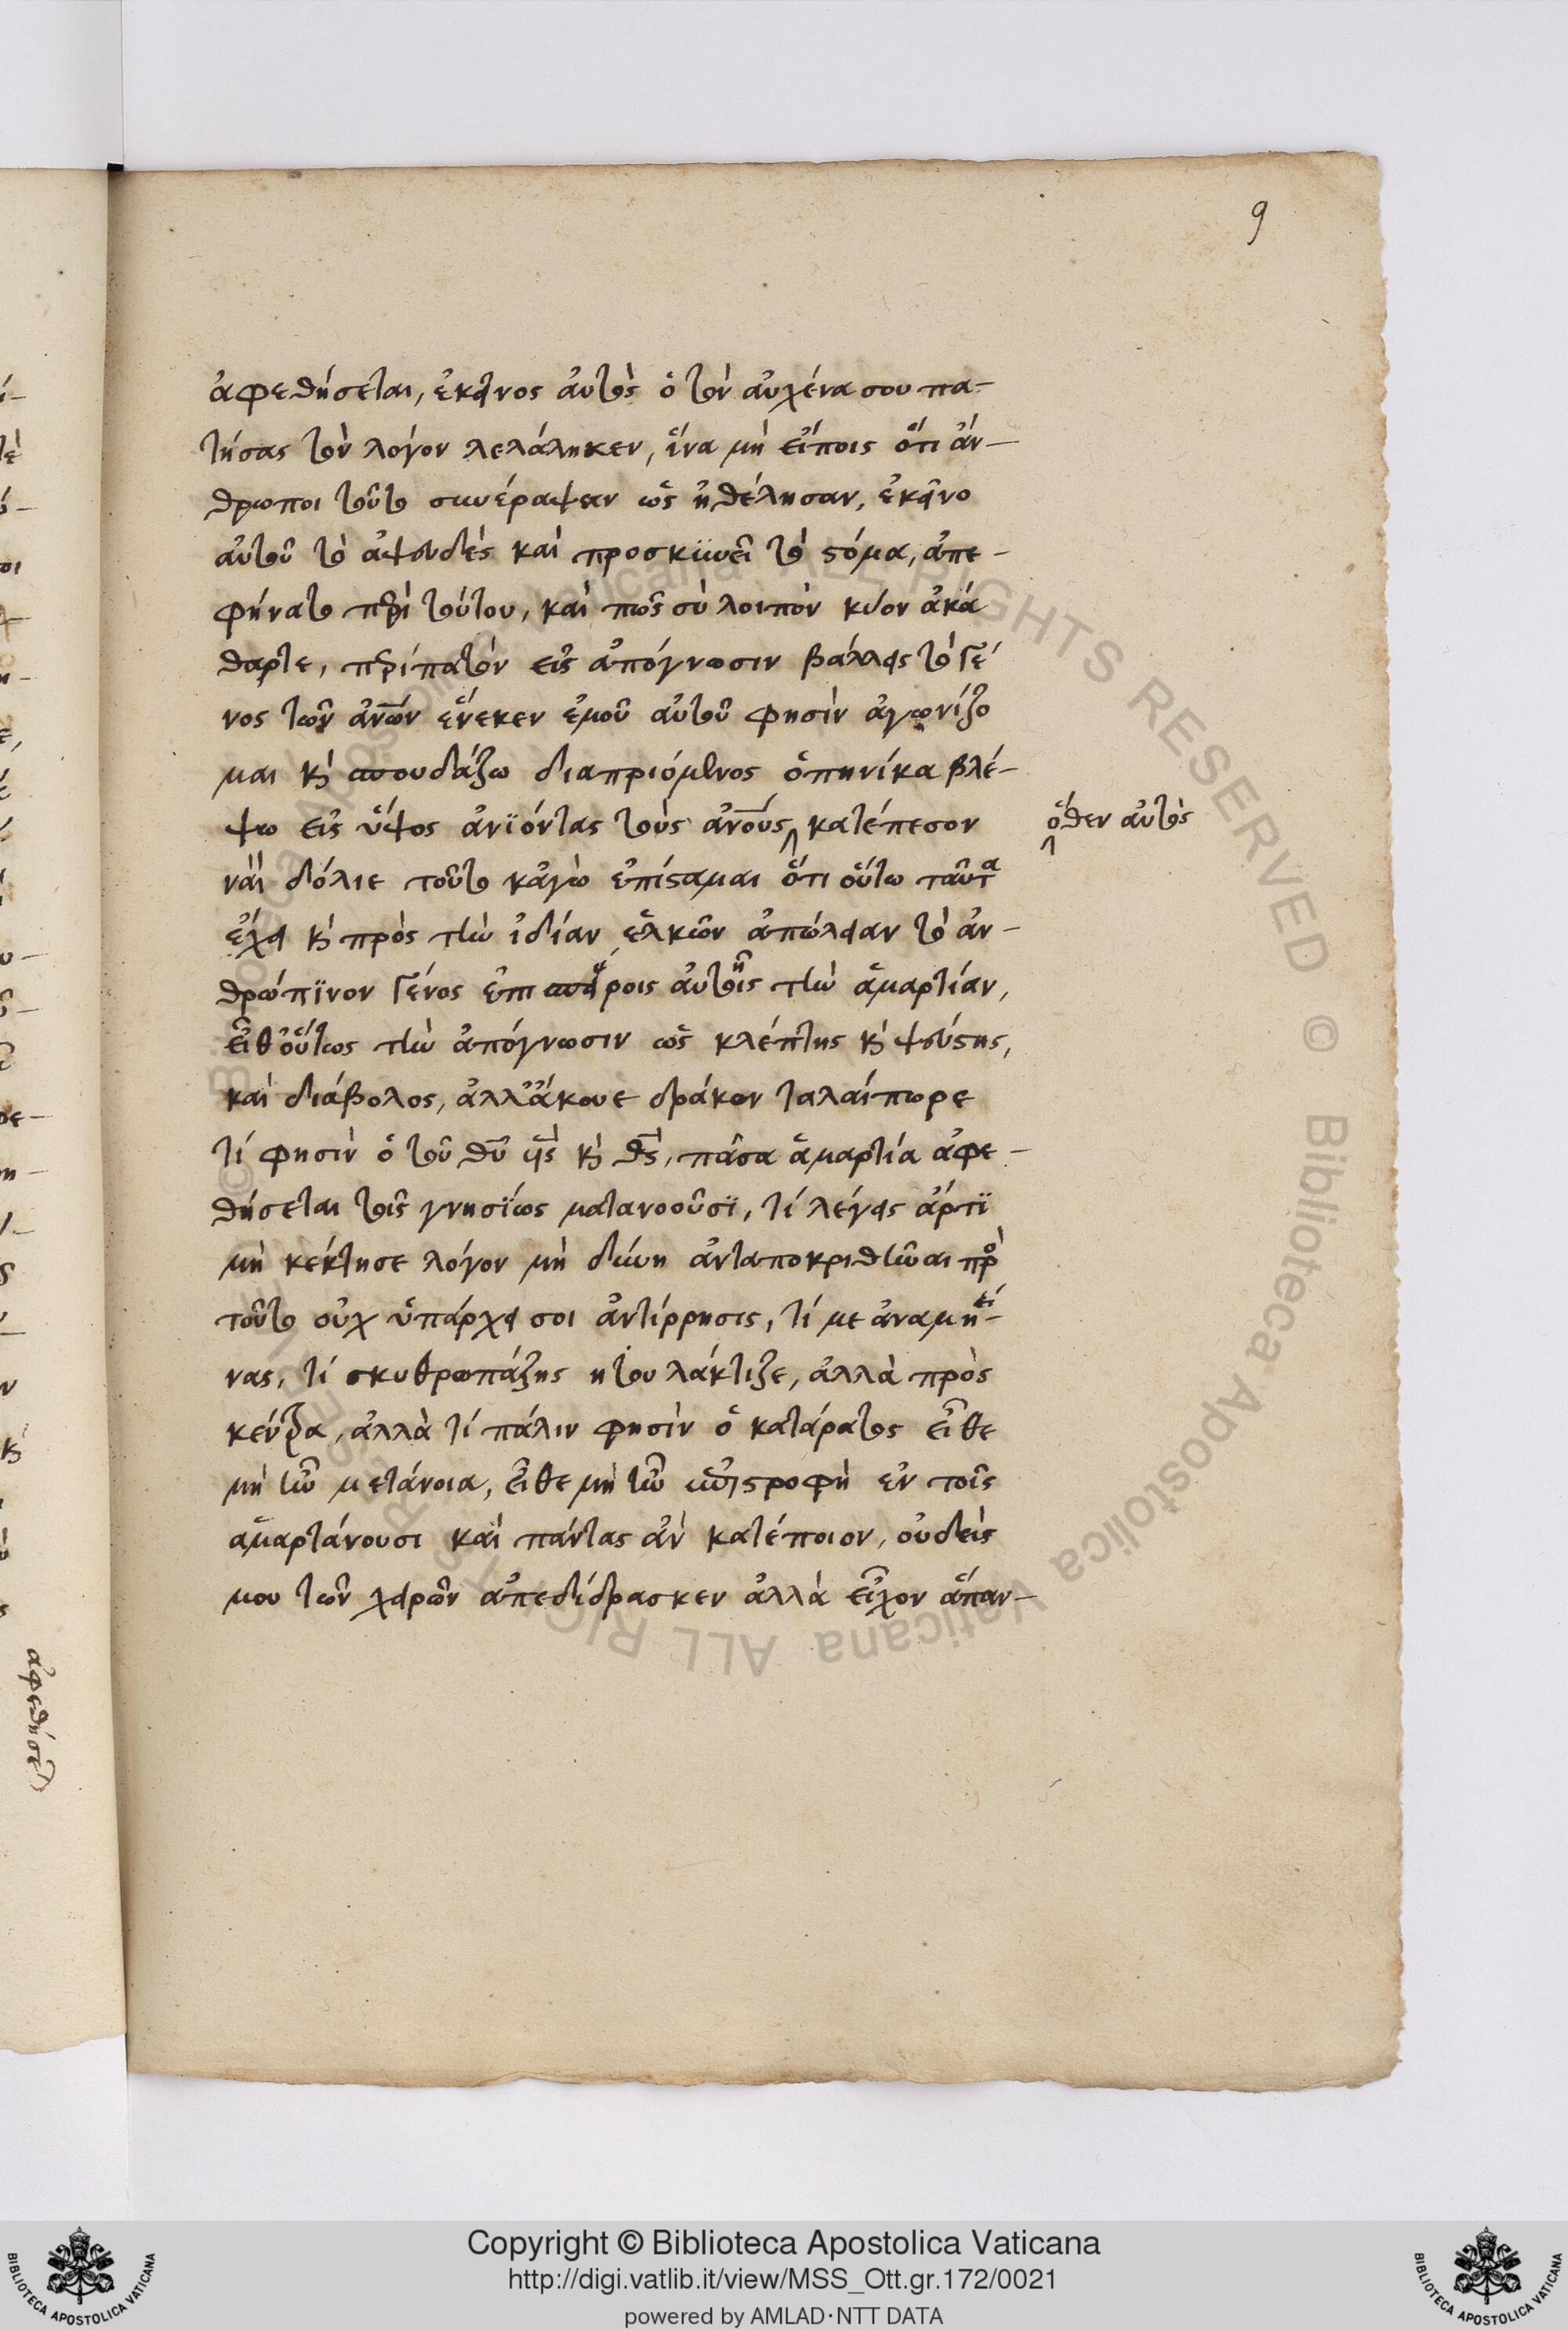 9
ἀφεθήσεται, ἐκεῖνος αὐτὸς ὁ τὸν αὐχένα σου πα-
τήσας τὸν λόγον λελάληκεν, ἵνα μὴ εἴποις ὅτι ἄν-
θρωποι τοῦτο συνέραψαν ὡς ἠθέλησαν, ἐκεῖνο
αὐτοῦ τὸ ἀψευδὲς καὶ προσκϋνεῖ τὸ στόμα, ἀπε-
φήνατο περὶ τούτου, καὶ πῶς σὺ λοιπὸν κύον ἀκά
θαρτε, περίπατὸν εἰς ἀπόγνωσιν βάλλεις τὸ γέ
νος τῶν ἀνῶν ἕνεκεν ἐμοῦ αὐτοῦ φησὶν ἀγωνίζο
μαι κὶ σπουδάζω διαπριόμενος ὁπηνίκα βλέ-
ψω εἰς ὕψος ἀνϊόντας τοὺς ἀνους κατέπεσον
ὅθεν αὐτὸς
ναὶ δόλιε τοῦτο κἀγὼ ἐπίσταμαι ὅτι οὕτω ταῦτα
ἔχει κὶ πρὸς τὴν ἰδίαν ἑλκῶν ἀπώλειαν τὸ ἀν-
θρώπϊνον γένος ἐπισπείροις αὐτοῖς τὴν ἁμαρτίαν,
εἶθοὕτως τὴν ἀπόγνωσιν ὡς κλέπτης κὶ ψεύστης,
καὶ διάβολος, ἀλλἄκουε δράκον ταλαίπωρε
τί φησὶν ὁ τοῦ θυ υς κὶ θς, πᾶσα ἁμαρτία ἀφε-
θήσεται τοῖς γνησΐως ματανοοῦσϊ, τί λέγεις ἄρτϊ
μὴ κέκτησε λόγον μὴ δύνη ἀνταποκριθῆναι πρὸ
τοῦτο οὐχ ὑπάρχει σοι ἀντίρρησις, τί με ἀναμή-
νας, τί σκυθρωπάζης ητου λάκτιζε, ἀλλὰ πρὸς
κέντρα, ἀλλὰ τί πάλιν φησὶν ὁ κατάρατος εἶθε
μὴ ἦν μετάνοια, εἶθε μὴ ἦν ἐπιστροφὴ ἐν τοῖς
ἁμαρτάνουσι καὶ πάντας ἂν κατέποιον, οὐδεὶς
μου τῶν χειρῶν ἀπεδίδρασκεν ἀλλὰ εἶχον ἅπαν-
ἀφεθήσεται
Copyright © Biblioteca Apostolica Vaticana
http://digi.vatlib.it/view/MSS_Ott.gr.172/0021
powered by AMLAD·NTT DATA